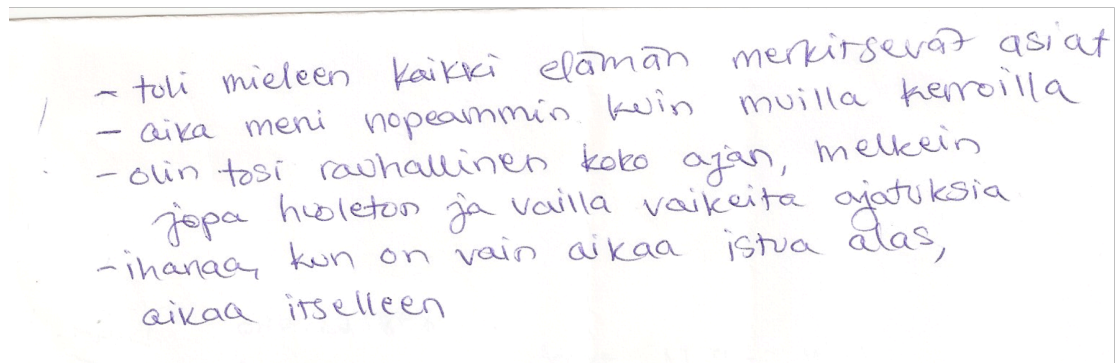 - tuli mieleen kaikki elämän merkitsevät asiat
- aika meni nopeammin kuin muilla kerroilla
- olin tosi rauhallinen koko ajan, melkein
jopa huoleton ja vailla vaikeita ajatuksia
- ihanaa, kun on vain aikaa istua alas,
aikaa itselleen